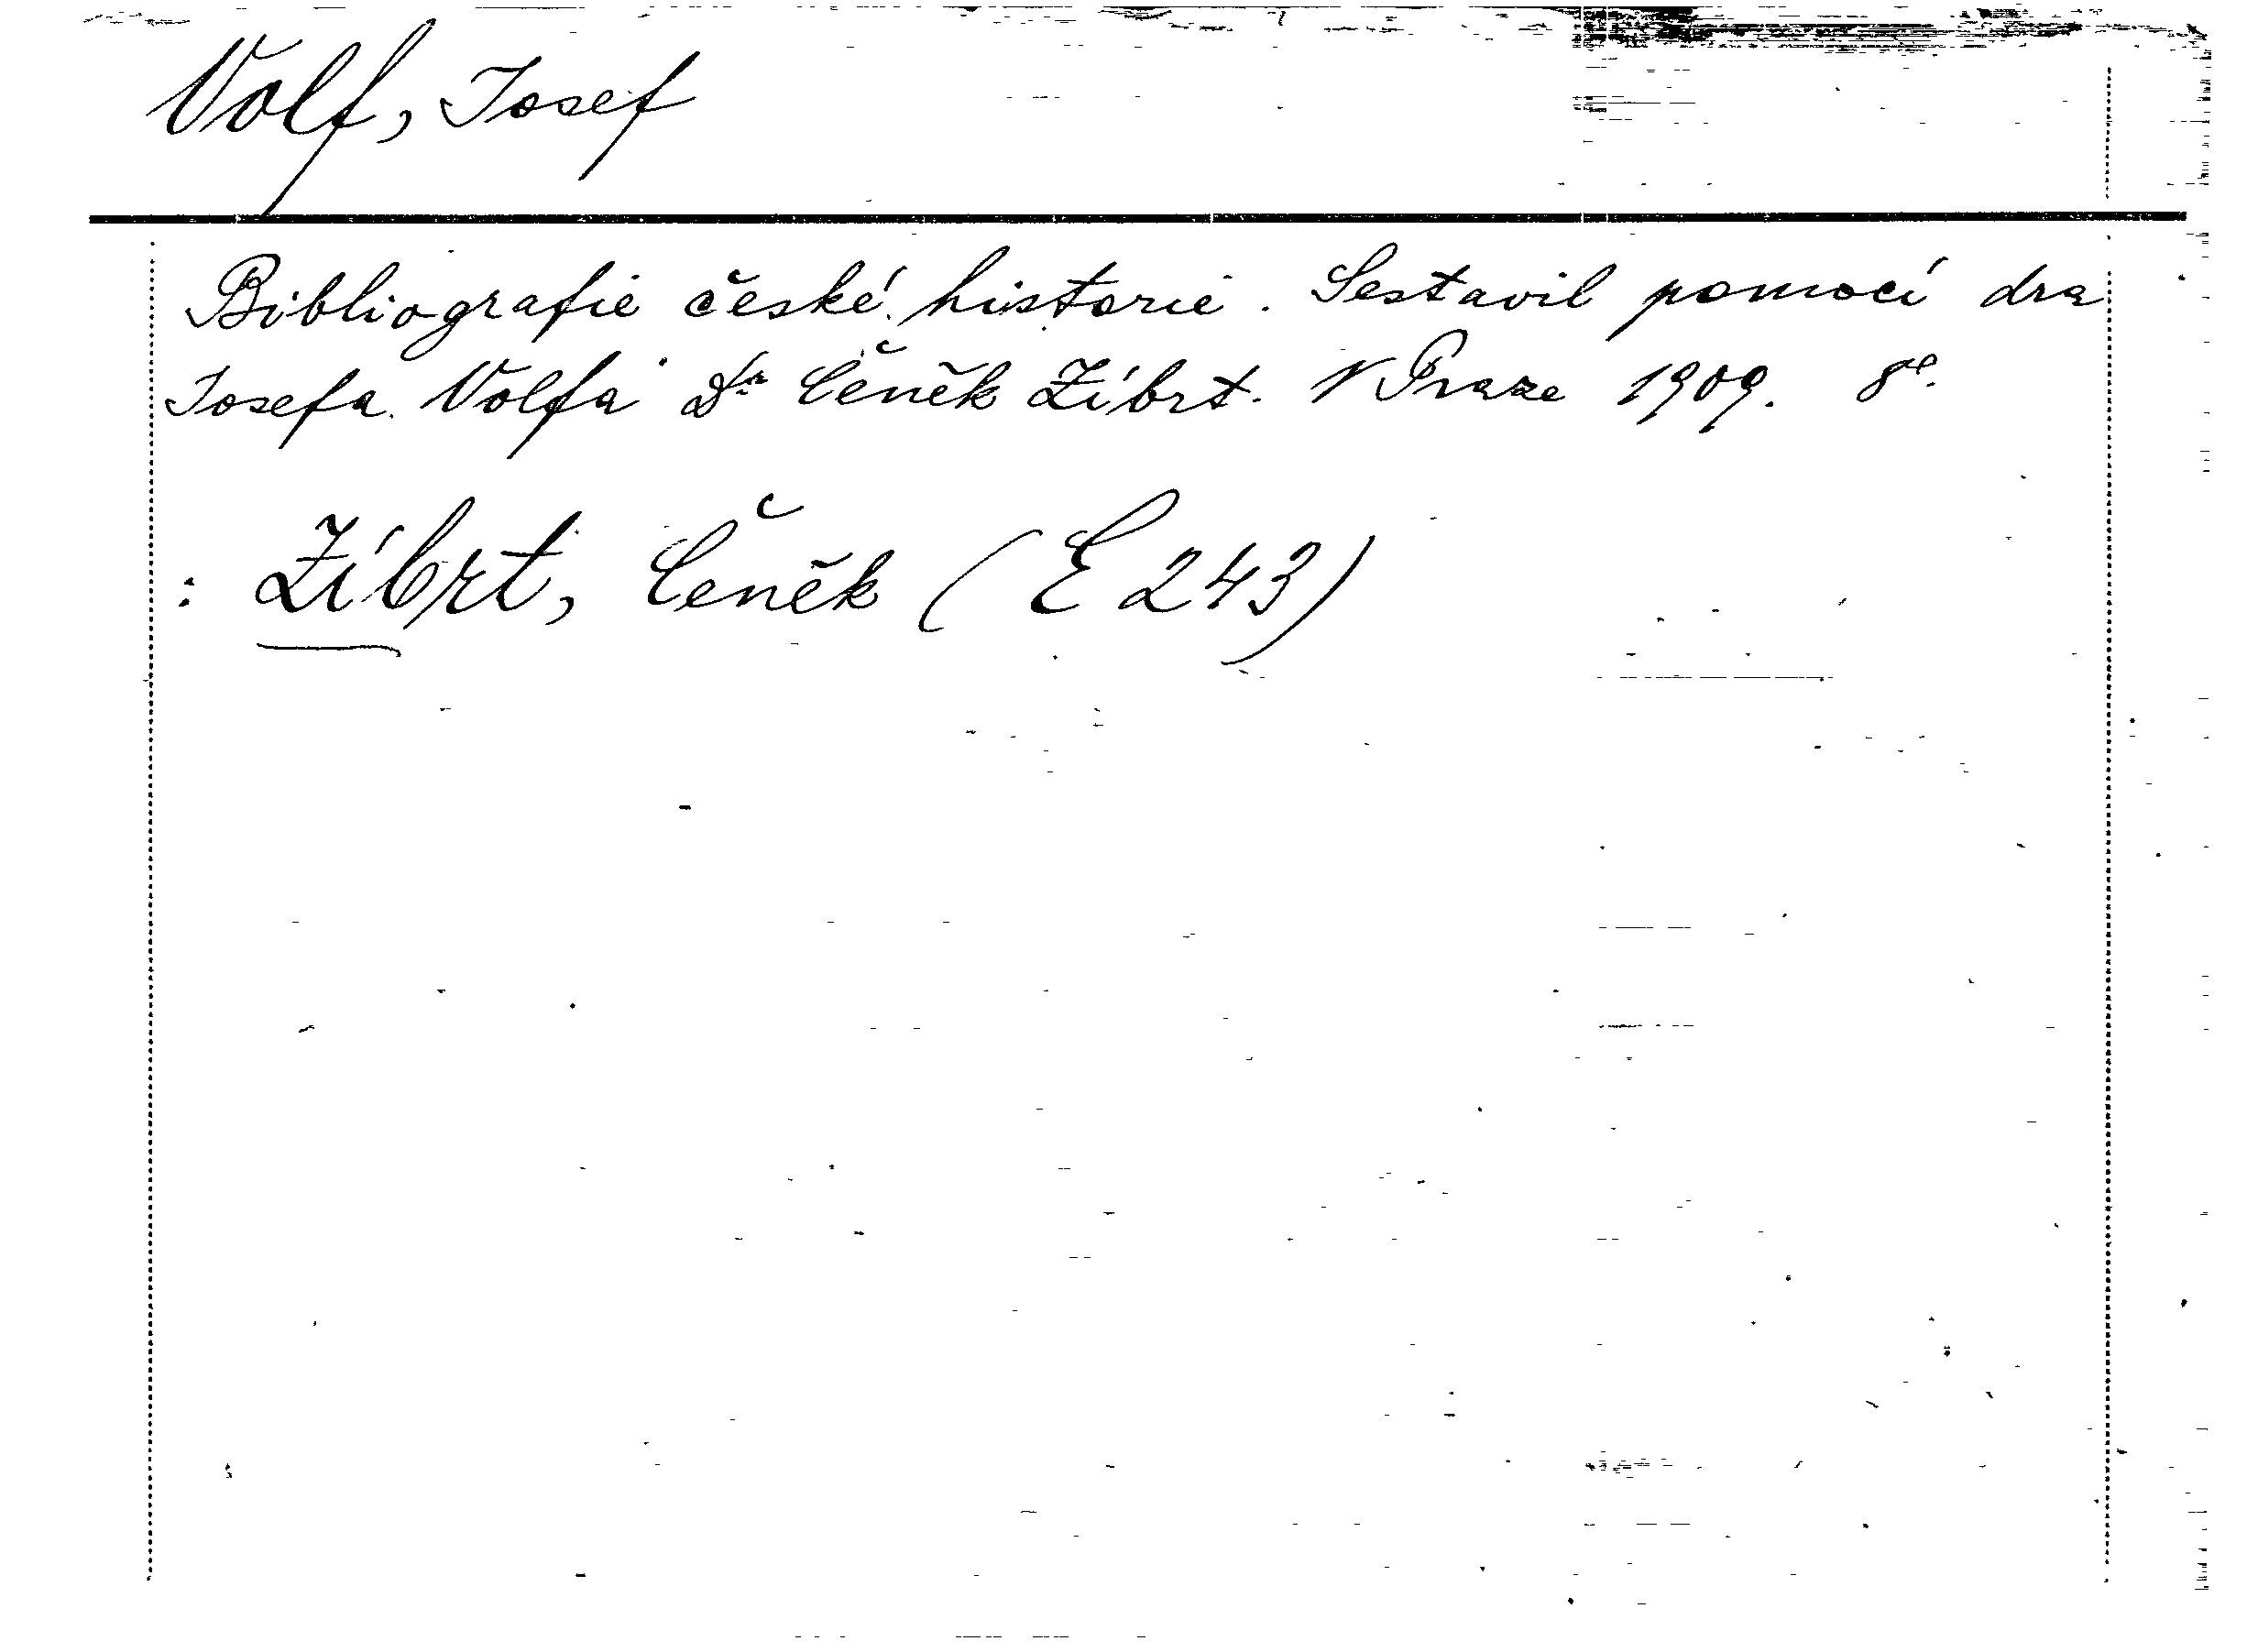 Volf, Josef
Bibliografie české historie. Sestavil pomocí dra
Josefa Volfa Dr Čeněk Zíbrt. V Praze 1909. 8°.
: Zíbrt, Čeněk (E 243)